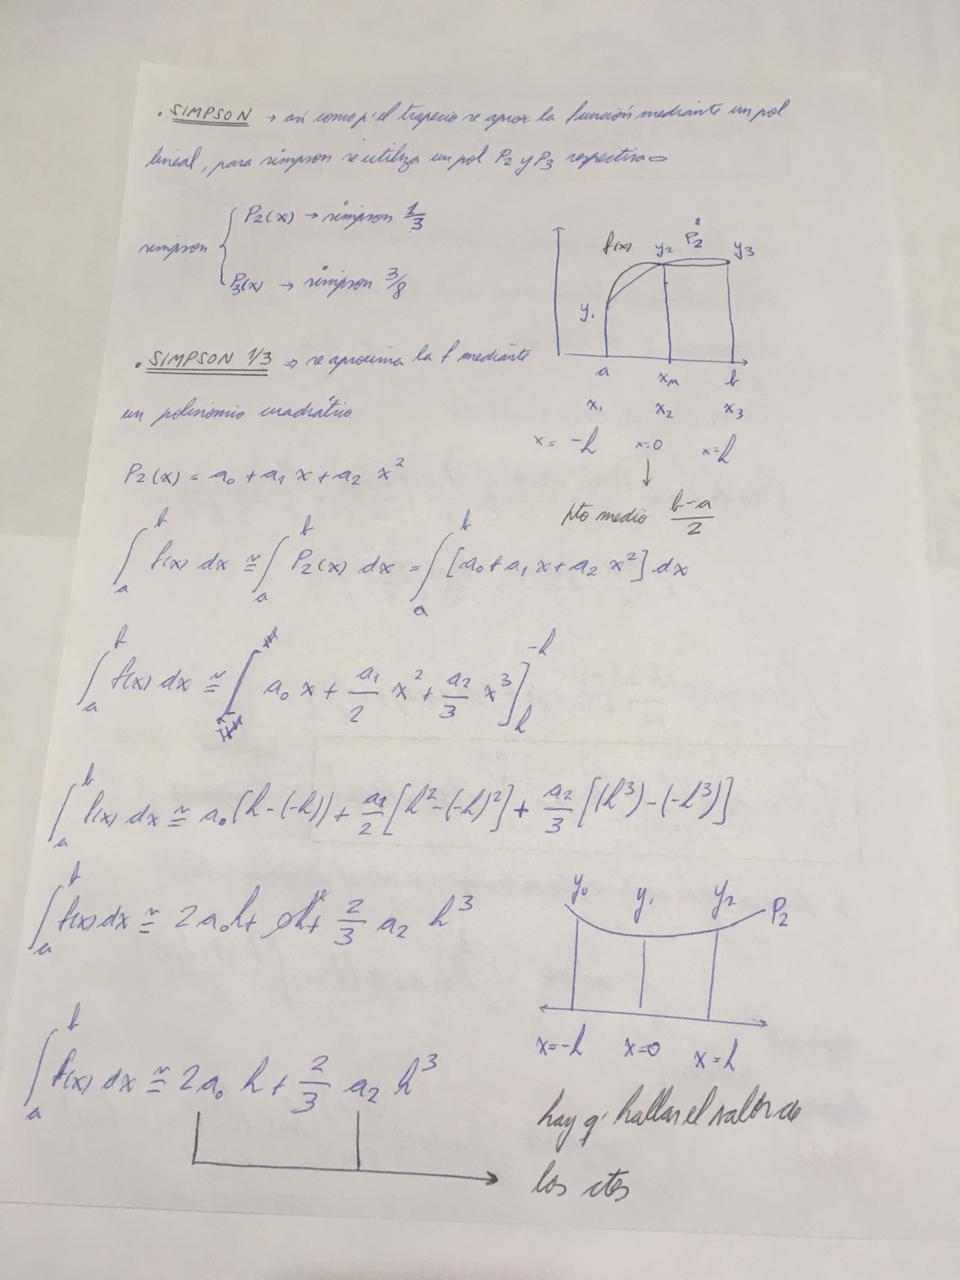 . SIMPSON → así como p' el trapecio se aprox la función mediante un pol
lineal, para simpson se utiliza un pol P₂ y P₃ respectiva
simpson { P₂(x) → simpson 1/3
P₃(x) → simpson 3/8
f(x) y₂ P₂ y₃
y₁
a xm b
x₁ x₂ x₃
x = -h x=0 x=h
↓
pto medio (b-a)/2
. SIMPSON 1/3 ⇒ se aproxima la f mediante
un polinomio cuadrático
P₂(x) = a₀ + a₁ x + a₂ x²
∫ₐᵇ f(x) dx ≅ ∫ₐᵇ P₂(x) dx = ∫ₐᵇ [a₀ + a₁ x + a₂ x²] dx
∫ₐᵇ f(x) dx ≅ [ a₀ x + a₁/2 x² + a₂/3 x³ ] -h h
∫ₐᵇ f(x) dx ≅ a₀ (h-(-h)) + a₁/2 [h²-(-h)²] + a₂/3 [(h³)-(-h³)]
∫ₐᵇ f(x) dx ≅ 2a₀h + 2/3 a₂ h³
y₀ y₁ y₂ P₂
x=-h x=0 x=h
∫ₐᵇ f(x) dx ≅ 2a₀ h + 2/3 a₂ h³
hay q' hallar el valor de
los ctes